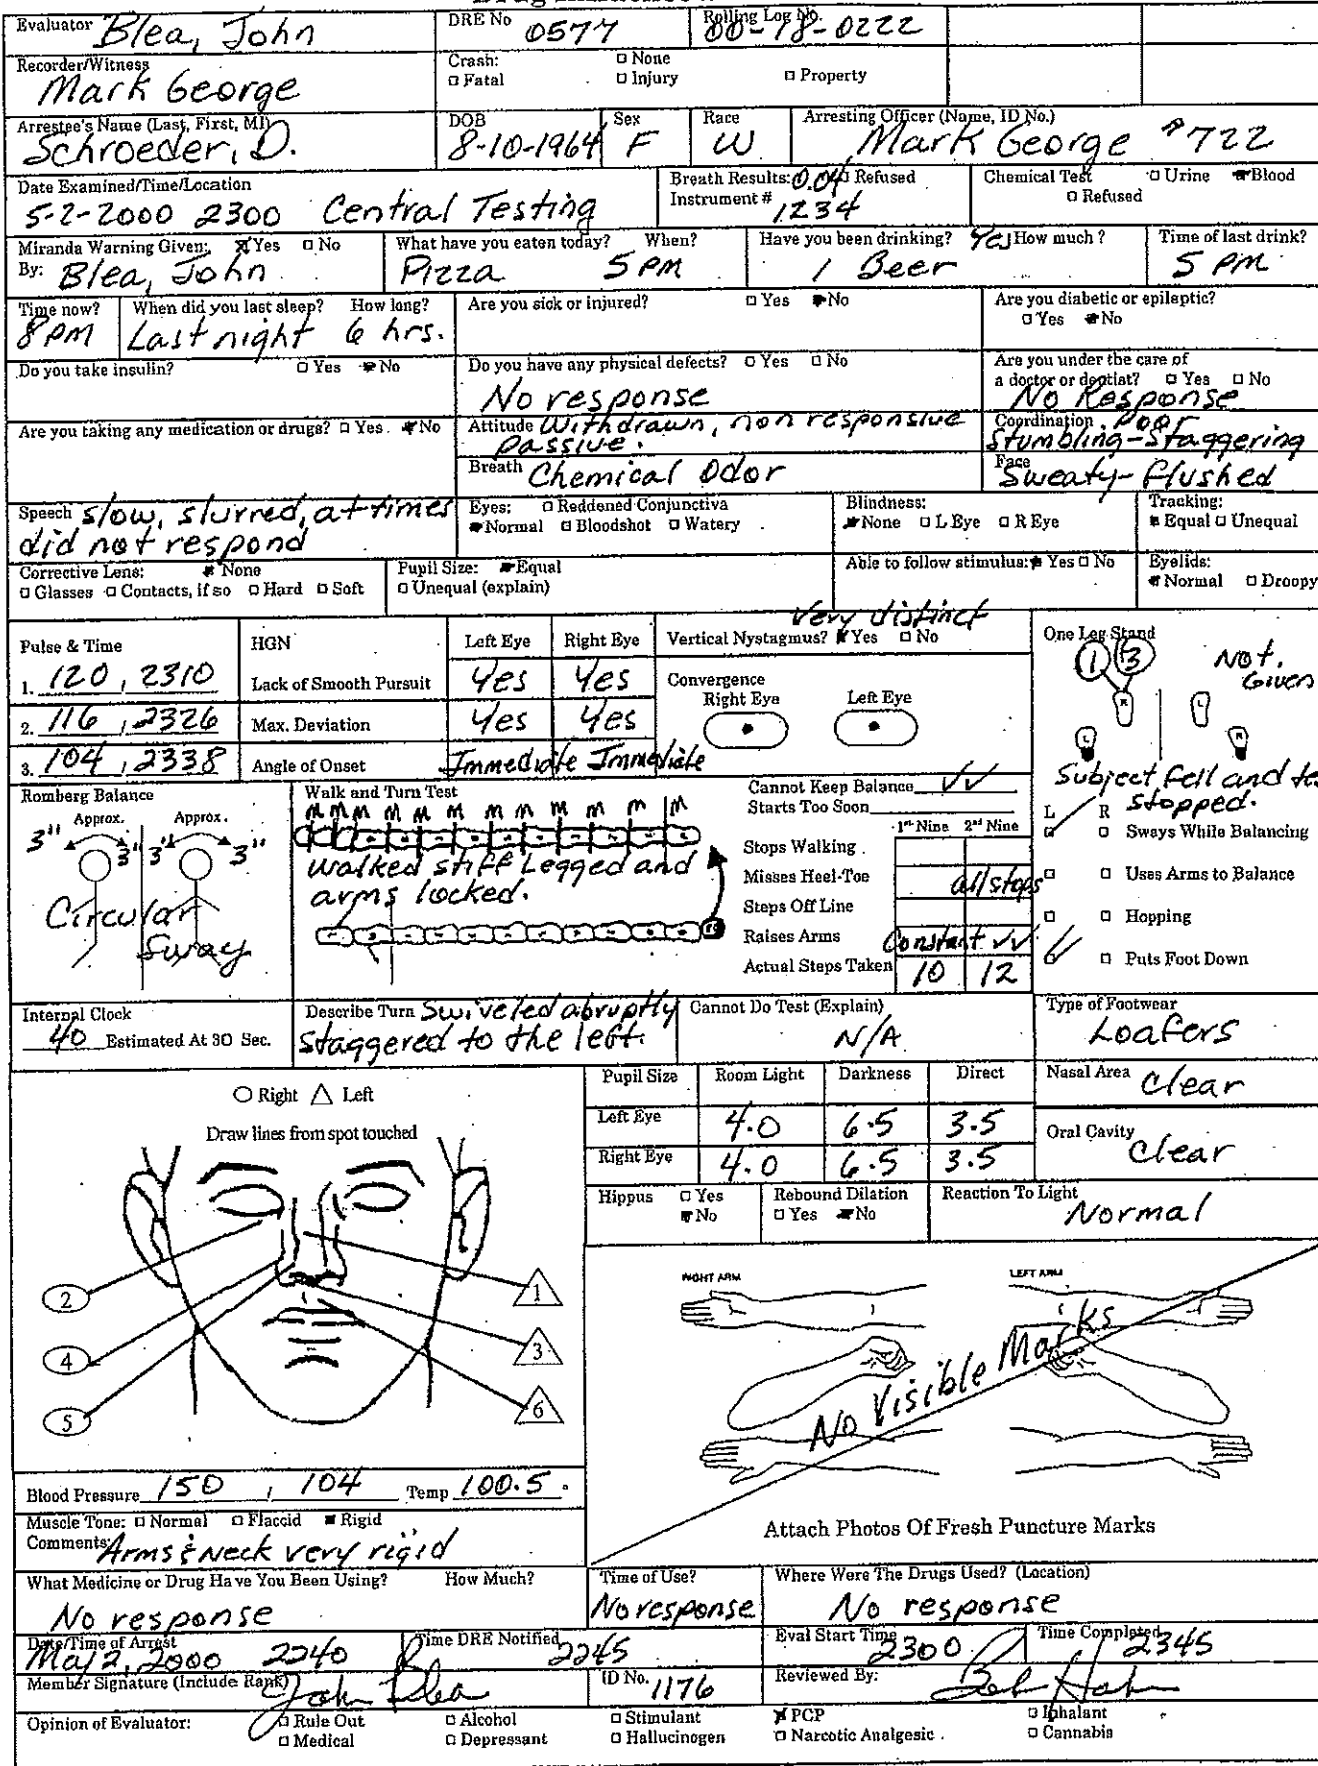 Evaluator Blea, John
DRE No 0577
Rolling Log No. 00-18-0222
Recorder/Witness
Mark George
Crash: □ None
□ Fatal □ Injury □ Property
Arrestee's Name (Last, First, MI)
Schroeder, D.
DOB
8-10-1964
Sex
F
Race
W
Arresting Officer (Name, ID No.)
Mark George #722
Date Examined/Time/Location
5-2-2000 2300 Central Testing
Breath Results: 0.04 □ Refused
Instrument # 1234
Chemical Test □ Urine ■ Blood
□ Refused
Miranda Warning Given: ☒ Yes □ No
By: Blea, John
What have you eaten today? When?
Pizza 5 PM
Have you been drinking? Yes How much?
1 Beer
Time of last drink?
5 PM
Time now?
8 PM
When did you last sleep? How long?
Last night 6 hrs.
Are you sick or injured? □ Yes ■ No
Are you diabetic or epileptic?
□ Yes ■ No
Do you take insulin? □ Yes ■ No
Do you have any physical defects? □ Yes □ No
No response
Are you under the care of
a doctor or dentist? □ Yes □ No
No Response
Are you taking any medication or drugs? □ Yes ■ No
Attitude Withdrawn, non responsive
passive.
Coordination Poor
Stumbling-Staggering
Breath Chemical Odor
Face
Sweaty-flushed
Speech slow, slurred, at times
did not respond
Eyes: □ Reddened Conjunctiva
■ Normal □ Bloodshot □ Watery
Blindness:
■ None □ L Eye □ R Eye
Tracking:
■ Equal □ Unequal
Corrective Lens: ■ None
□ Glasses □ Contacts, if so □ Hard □ Soft
Pupil Size: ■ Equal
□ Unequal (explain)
Able to follow stimulus: ■ Yes □ No
Eyelids:
■ Normal □ Droopy
Pulse & Time
1. 120, 2310
2. 116, 2326
3. 104, 2338
HGN Left Eye Right Eye
Lack of Smooth Pursuit Yes Yes
Max. Deviation Yes Yes
Angle of Onset Immediate Immediate
Very distinct
Vertical Nystagmus? ■ Yes □ No
Convergence
Right Eye Left Eye
One Leg Stand
1 3 Not Given
R L
L R
Subject fell and
stopped.
L R
□ □ Sways While Balancing
□ □ Uses Arms to Balance
□ □ Hopping
□ □ Puts Foot Down
Romberg Balance
Approx. Approx.
3" 3" 3" 3"
Circular
Sway
Walk and Turn Test
M M M M M M M M M M
Walked stiff Legged and
arms locked.
Cannot Keep Balance ✓✓
Starts Too Soon
1st Nine 2nd Nine
Stops Walking
Misses Heel-Toe all steps
Steps Off Line
Raises Arms Constant ✓✓
Actual Steps Taken 10 12
Internal Clock
40 Estimated At 30 Sec.
Describe Turn Swiveled abruptly
staggered to the left.
Cannot Do Test (Explain)
N/A
Type of Footwear
Loafers
○ Right △ Left
Draw lines from spot touched
2 1
4 3
5 6
Pupil Size Room Light Darkness Direct
Left Eye 4.0 6.5 3.5
Right Eye 4.0 6.5 3.5
Nasal Area Clear
Oral Cavity
Clear
Hippus □ Yes
■ No
Rebound Dilation
□ Yes ■ No
Reaction To Light
Normal
RIGHT ARM LEFT ARM
No Visible Marks
Attach Photos Of Fresh Puncture Marks
Blood Pressure 150, 104 Temp 100.5
Muscle Tone: □ Normal □ Flaccid ■ Rigid
Comments: Arms & Neck very rigid
What Medicine or Drug Have You Been Using? How Much?
No response
Time of Use?
No response
Where Were The Drugs Used? (Location)
No response
Date/Time of Arrest
May 2, 2000 2240
Time DRE Notified
2245
Eval Start Time
2300
Time Completed
2345
Member Signature (Include Rank) John Blea
ID No. 1176
Reviewed By:
Opinion of Evaluator: □ Rule Out □ Alcohol □ Stimulant ☒ PCP □ Inhalant
□ Medical □ Depressant □ Hallucinogen □ Narcotic Analgesic □ Cannabis